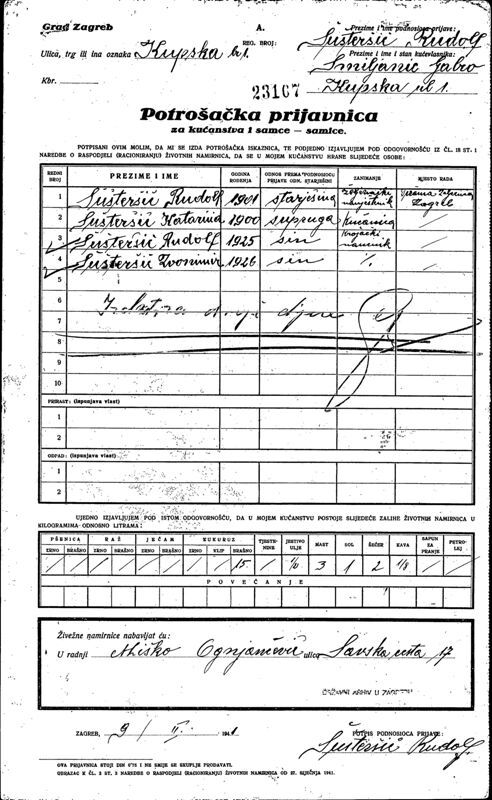 Grad Zagreb
A.
Prezime i ime podnosioca prijave:
Šušteršič Rudolf
Ulica, trg ili ina oznaka Kupska br 1.
REG. BROJ:
Prezime i ime i stan kućevlasnika:
Smiljanić Gabro
Kbr.
23167
Kupska ul 1.
Potrošačka prijavnica
za kućanstva i samce – samice.
POTPISANI OVIM MOLIM, DA MI SE IZDA POTROŠAČKA ISKAZNICA, TE PODJEDNO IZJAVLJUJEM POD ODGOVORNOŠĆU IZ ČL. 18 ST. 1
NAREDBE O RASPODJELI (RACIONIRANJU) ŽIVOTNIH NAMIRNICA, DA SE U MOJEM KUĆANSTVU HRANE SLIJEDEĆE OSOBE:
REDNI BROJ PREZIME I IME GODINA ROĐENJA ODNOS PREMA PODNOSIOCU PRIJAVE ODN. STARJEŠINI ZANIMANJE MJESTO RADA
1 Šušteršič Rudolf 1901 starješina Zagreb
2 Šušteršič Katarina 1900 supruga Kućanica /
3 Šušteršič Rudolf 1925 sin Krojački naučnik /
4 Šušteršič Zvonimir 1926 sin ·/. /
5
6
7
8
9
10
PRIRAST: (ispunjava vlast)
1
2
OTPAD: (ispunjava vlast)
1
2
UJEDNO IZJAVLJUJEM POD ISTOM ODGOVORNOŠĆU, DA U MOJEM KUĆANSTVU POSTOJE SLIJEDEĆE ZALIHE ŽIVOTNIH NAMIRNICA U
KILOGRAMIMA ODNOSNO LITRAMA:
PŠENICA RAŽ JEČAM KUKURUZ TJESTENINE JESTIVO ULJE MAST SOL ŠEĆER KAVA SAPUN ZA PRANJE PETROLEJ
ZRNO BRAŠNO ZRNO BRAŠNO ZRNO BRAŠNO ZRNO KLIP BRAŠNO
/ / / / / / / / 15 / 3 1 2 1/8 / /
POVEĆANJE
Živežne namirnice nabavljat ću:
U radnji Miško Ognjanović ulica Savska cesta 17
DRŽAVNI ARHIV U ZAGREBU
ZAGREB, 9 / II. 1941
POTPIS PODNOSIOCA PRIJAVE:
Šušteršič Rudolf
OVA PRIJAVNICA STOJI DIN 0'75 I NE SMIJE SE SKUPLJE PRODAVATI.
OBRAZAC K ČL. 3 ST. 3 NAREDBE O RASPODJELI (RACIONIRANJU) ŽIVOTNIH NAMIRNICA OD 27. SIJEČNJA 1941.